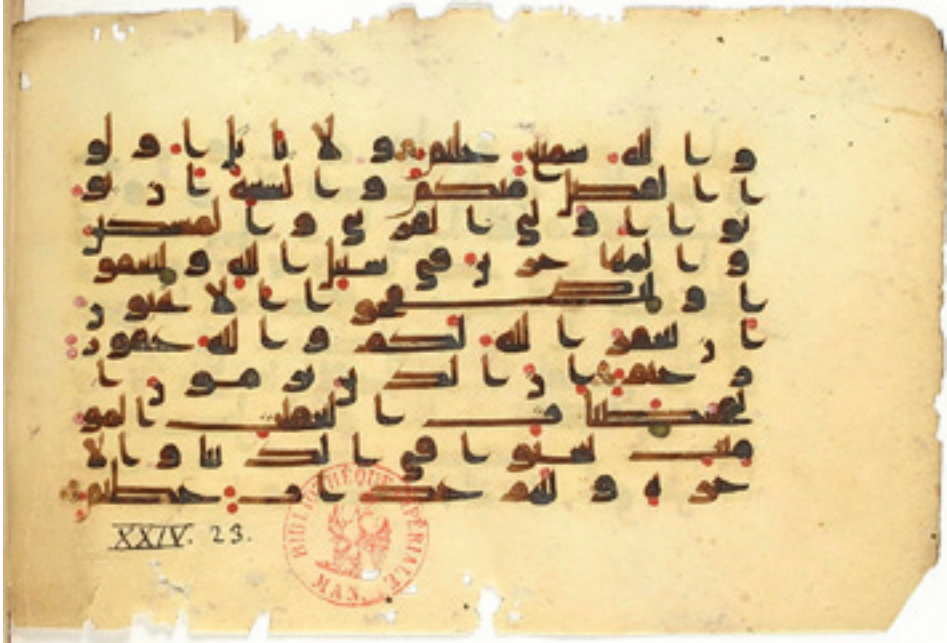 والله سميع عليم ولا ياتل اولو
ا الفضل منكم والسعة ان يو
توا اولي القربى والمسكين
والمهجرين في سبيل الله وليعفو
ا وليصفحوا الا تحبون
ان يغفر الله لكم والله غفور
رحيم ان الذين يرمون ا
لمحصنت الغفلت المو
منت لعنوا في الدنيا والا
خرة ولهم عذاب عظيم
XXIV. 23.
BIBLIOTHÈQUE IMPÉRIALE
MAN.